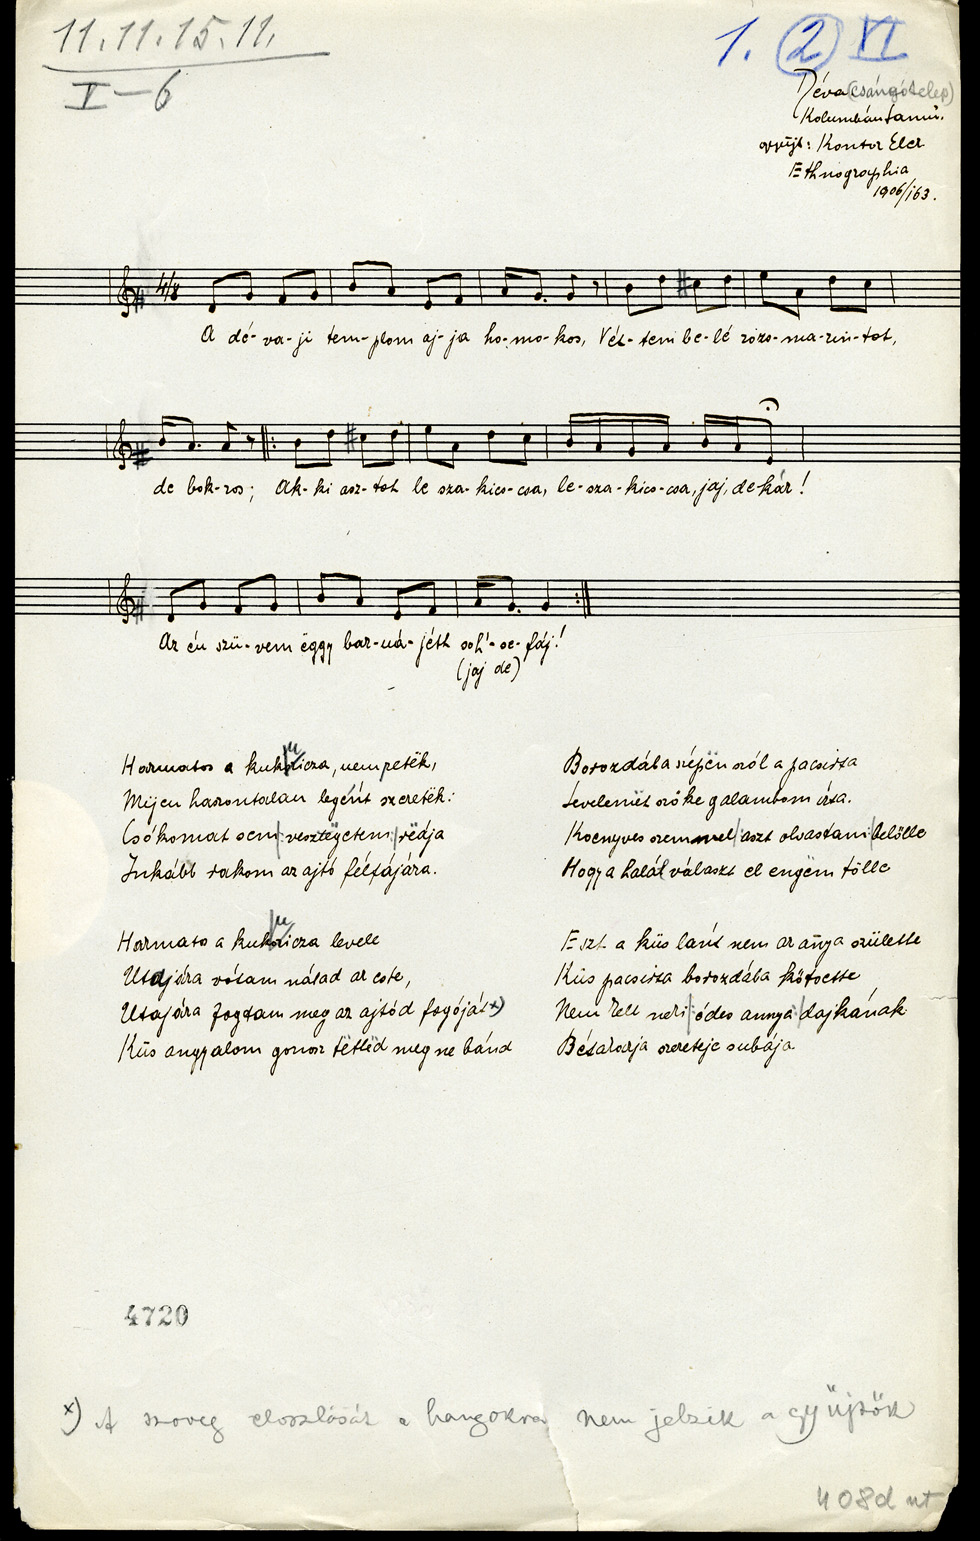 11.11.15.11.
I—6
1. (2) XI
Déva (csángótelep)
gyüjt: Kontor Elek
Ethnographia
1906/163.
4/8
A dé-va-ji tem-plom aj-ja ho-mo-kos, Vét-tem be-lé rozs-ma-rin-tot,
de bok-ros; Ak-ki asz-tot le sza-kics-csa, le-sza-kics-csa, jaj, de kár!
Az én szü-vem ëggy bar-ná-jétt soh'-se-fáj!
(jaj de)
Harmatos a kukuricza, nem petëk,
Mijen haszontalan legént szeretëk:
Csókomat sem vesztëgetem rëája
Inkább rakom az ajtó félfájára.
Harmato a kukuricza levele
Utajára vótam nálad az este,
Utajára fogtam meg az ajtód fogóját x)
Küs angyalom gonosz tëttëd meg ne bánd
Borozdába szépën szól a pacsirta
Levelemët szőke galambom írta.
Koenyves szemmel aszt olvastam belölle
Hogy a halál választ el engëm tölle
Eszt a küs lant nem az ánya születte
Küs pacsirta borozdába kötöcste
Nem kell neki ódes annya dajkának
Bétakarja szeretëje subája
4720
x) A szöveg eloszlását a hangokra nem jelzik a gyűjtők
408d nt